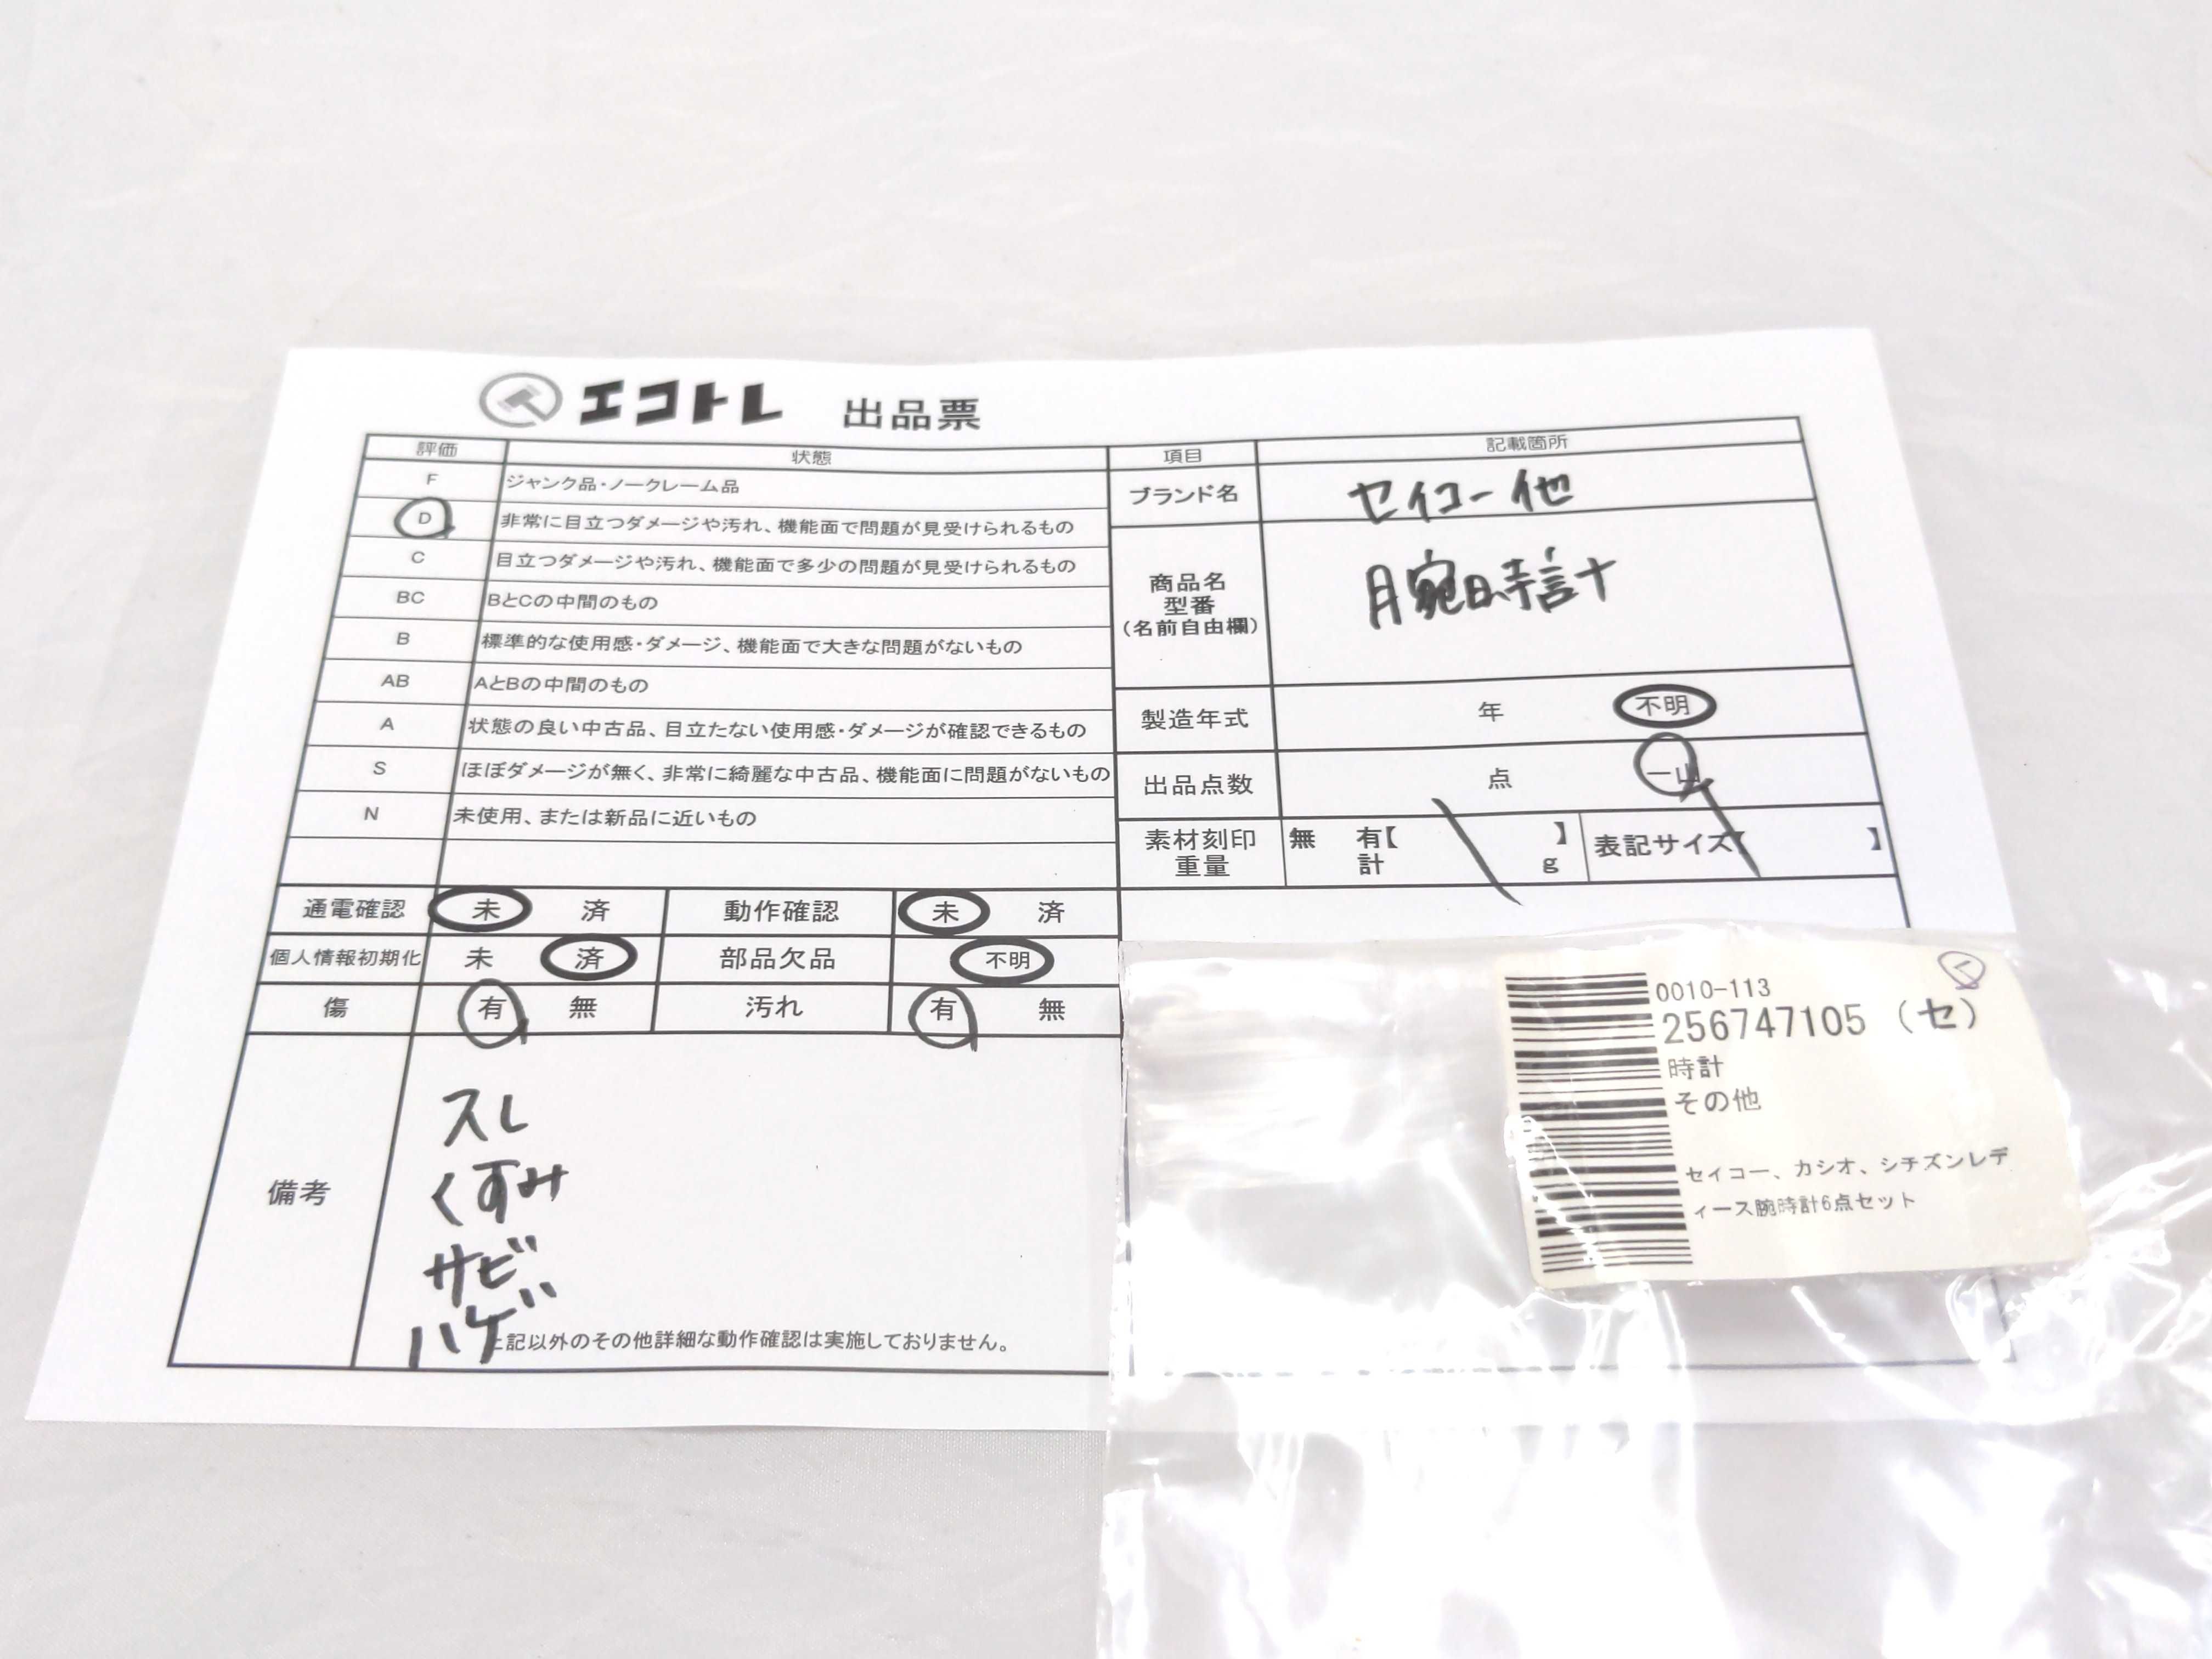 エコトレ 出品票
評価 状態
F ジャンク品・ノークレーム品
D 非常に目立つダメージや汚れ、機能面で問題が見受けられるもの
C 目立つダメージや汚れ、機能面で多少の問題が見受けられるもの
BC BとCの中間のもの
B 標準的な使用感・ダメージ、機能面で大きな問題がないもの
AB AとBの中間のもの
A 状態の良い中古品、目立たない使用感・ダメージが確認できるもの
S ほぼダメージが無く、非常に綺麗な中古品、機能面に問題がないもの
N 未使用、または新品に近いもの
項目 記載箇所
ブランド名 セイコー他
商品名
型番
(名前自由欄)
腕時計
製造年式 年 不明
出品点数 点 一山
素材刻印 無 有【 】 表記サイズ【 】
重量 計 g
通電確認 未 済 動作確認 未 済
個人情報初期化 未 済 部品欠品 不明
傷 有 無 汚れ 有 無
備考
スレ
くすみ
サビ
ハゲ
記以外のその他詳細な動作確認は実施しておりません。
0010-113
256747105 (セ)
時計
その他
セイコー、カシオ、シチズンレデ
ィース腕時計6点セット